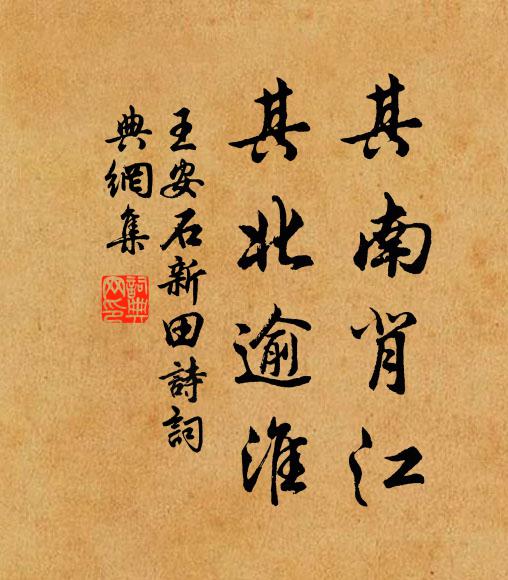 其南肖江
其北逾淮
王安石新田詩詞
典網集
詞典
网印